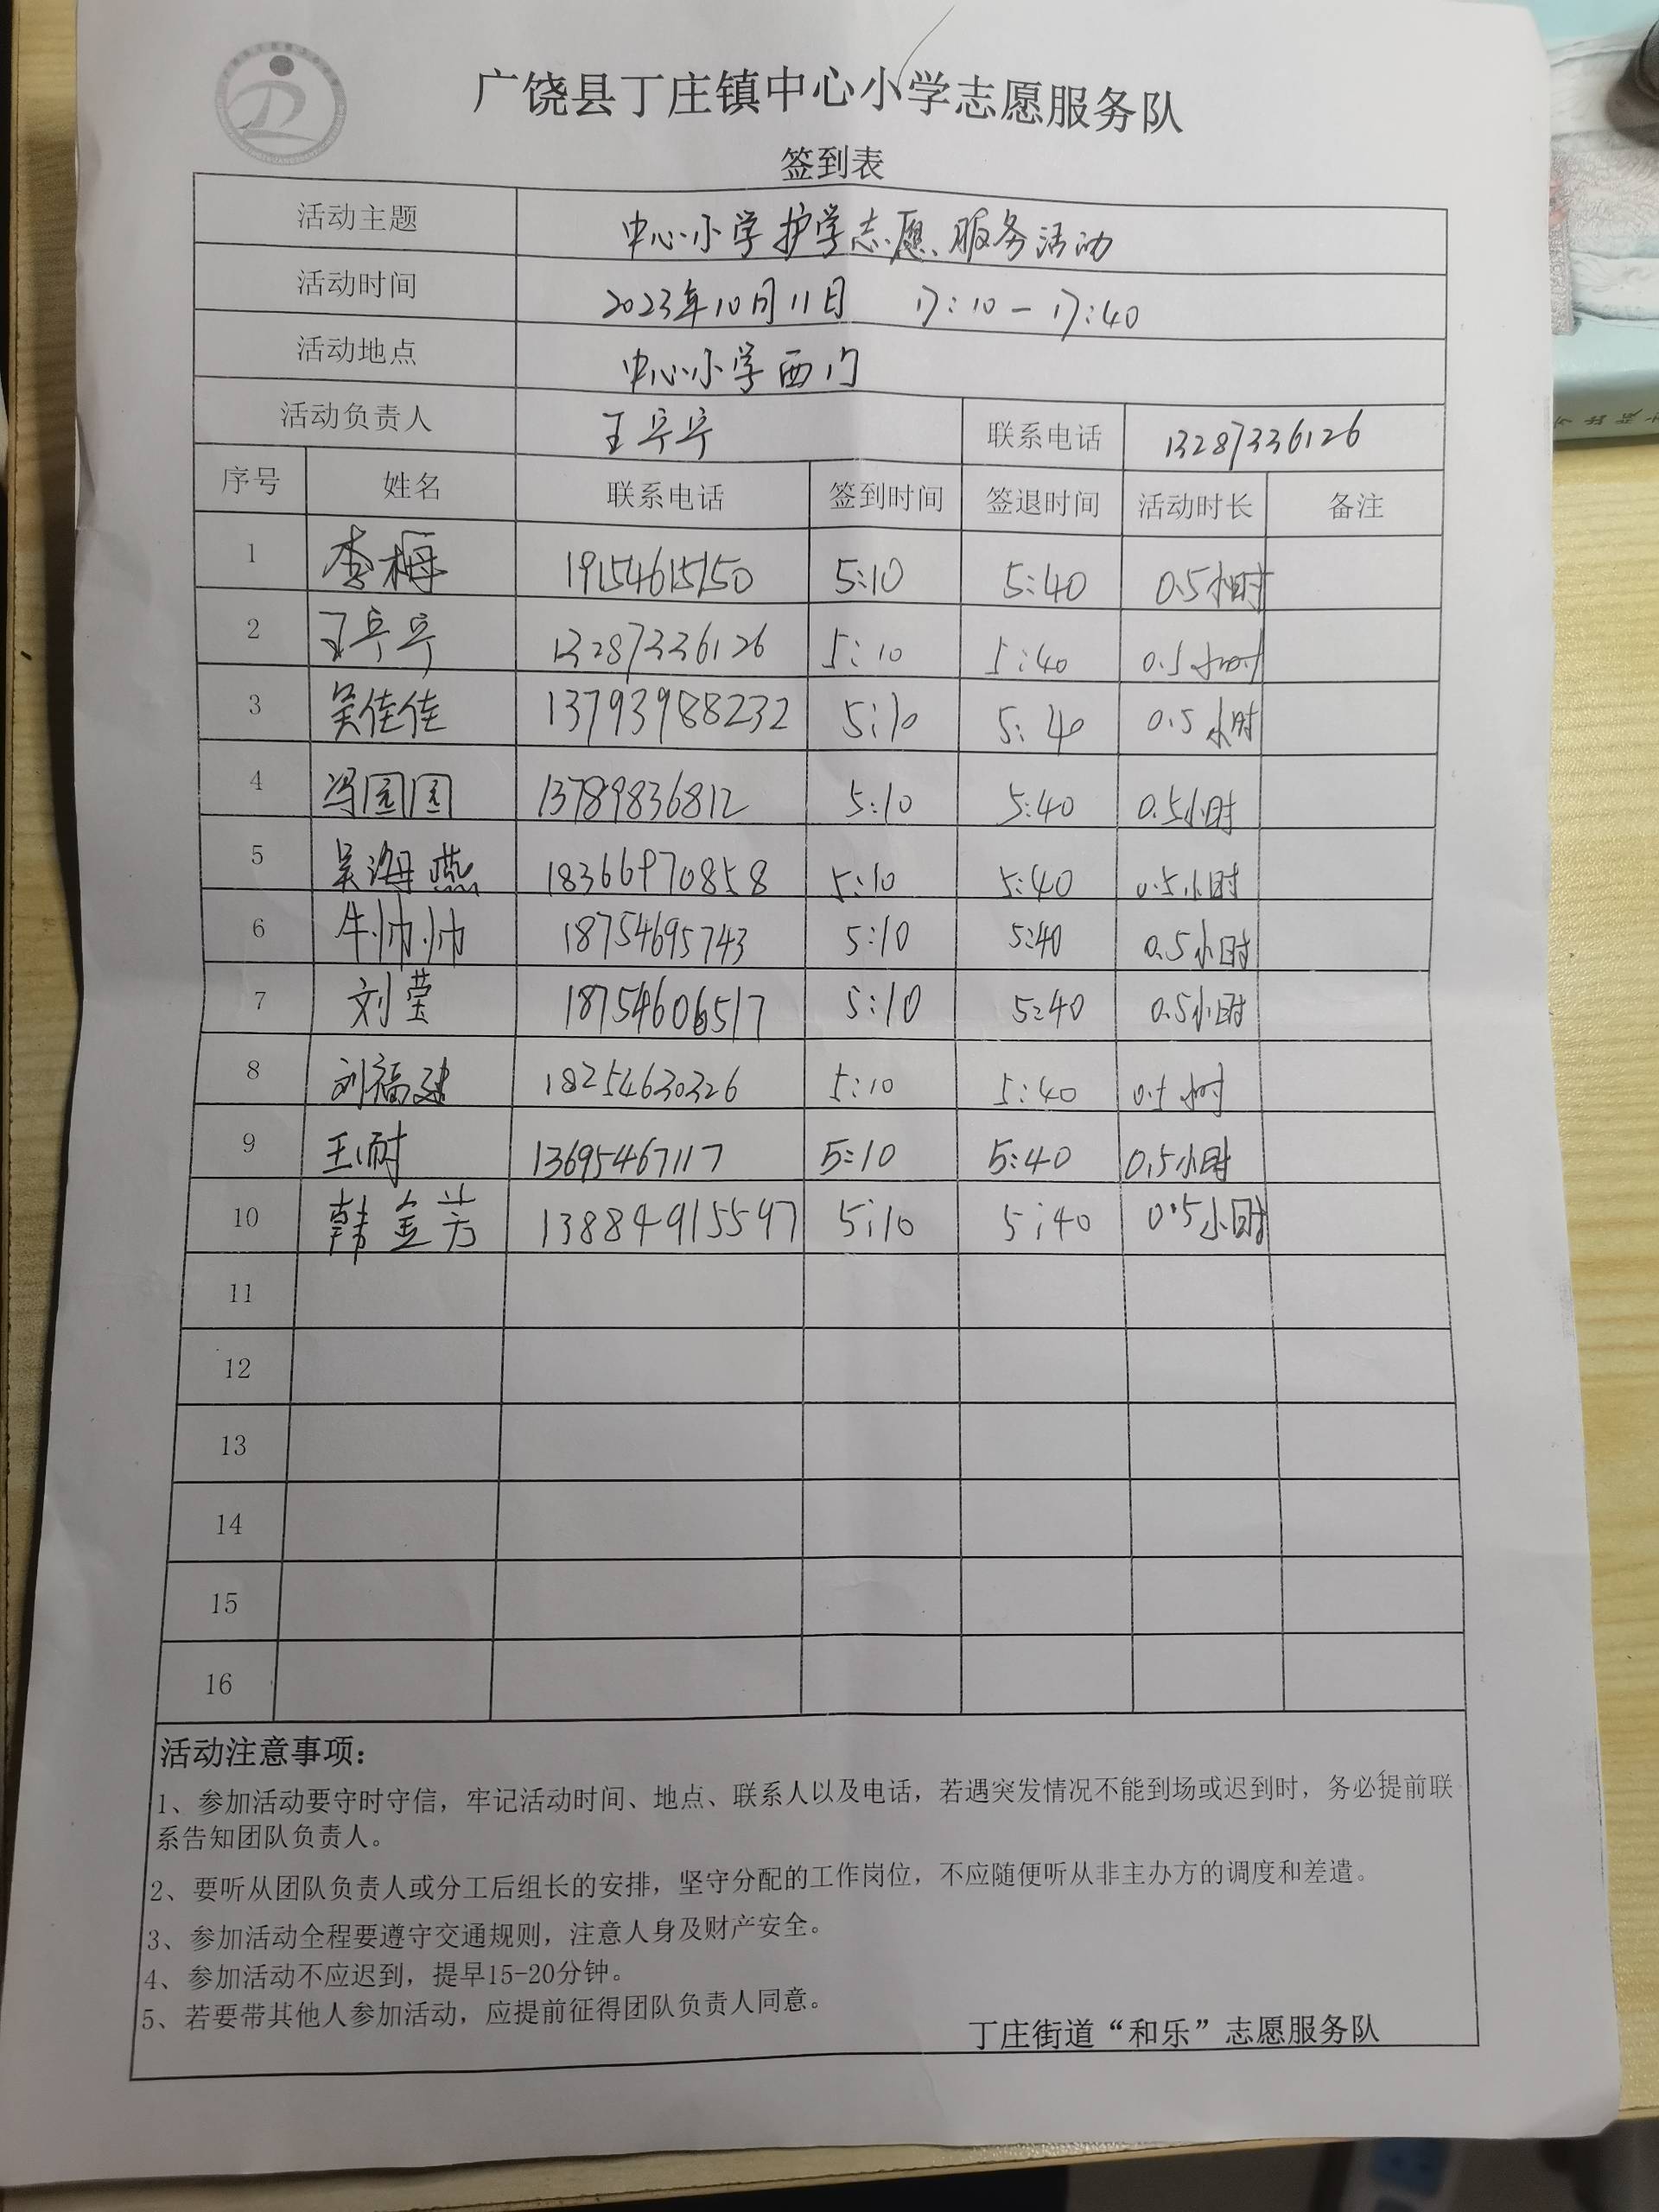 广饶县丁庄镇中心小学志愿服务队
签到表
活动主题 中心小学护学志愿服务活动
活动时间 2023年10月11日 17:10-17:40
活动地点 中心小学西门
活动负责人 王宁宁 联系电话 13287336126
序号 姓名 联系电话 签到时间 签退时间 活动时长 备注
1 李梅 19154615150 5:10 5:40 0.5小时
2 王宁宁 13287336126 5:10 5:40 0.5小时
3 吴佳佳 13793988232 5:10 5:40 0.5小时
4 冯园园 13789836812 5:10 5:40 0.5小时
5 吴海燕 18366970858 5:10 5:40 0.5小时
6 牛帅帅 18754695743 5:10 5:40 0.5小时
7 刘莹 18754606517 5:10 5:40 0.5小时
8 刘福建 18254630326 5:10 5:40 0.5小时
9 王耐 13695467117 5:10 5:40 0.5小时
10 韩金芳 13884915597 5:10 5:40 0.5小时
11
12
13
14
15
16
活动注意事项：
1、参加活动要守时守信，牢记活动时间、地点、联系人以及电话，若遇突发情况不能到场或迟到时，务必提前联
系告知团队负责人。
2、要听从团队负责人或分工后组长的安排，坚守分配的工作岗位，不应随便听从非主办方的调度和差遣。
3、参加活动全程要遵守交通规则，注意人身及财产安全。
4、参加活动不应迟到，提早15-20分钟。
5、若要带其他人参加活动，应提前征得团队负责人同意。
丁庄街道“和乐”志愿服务队